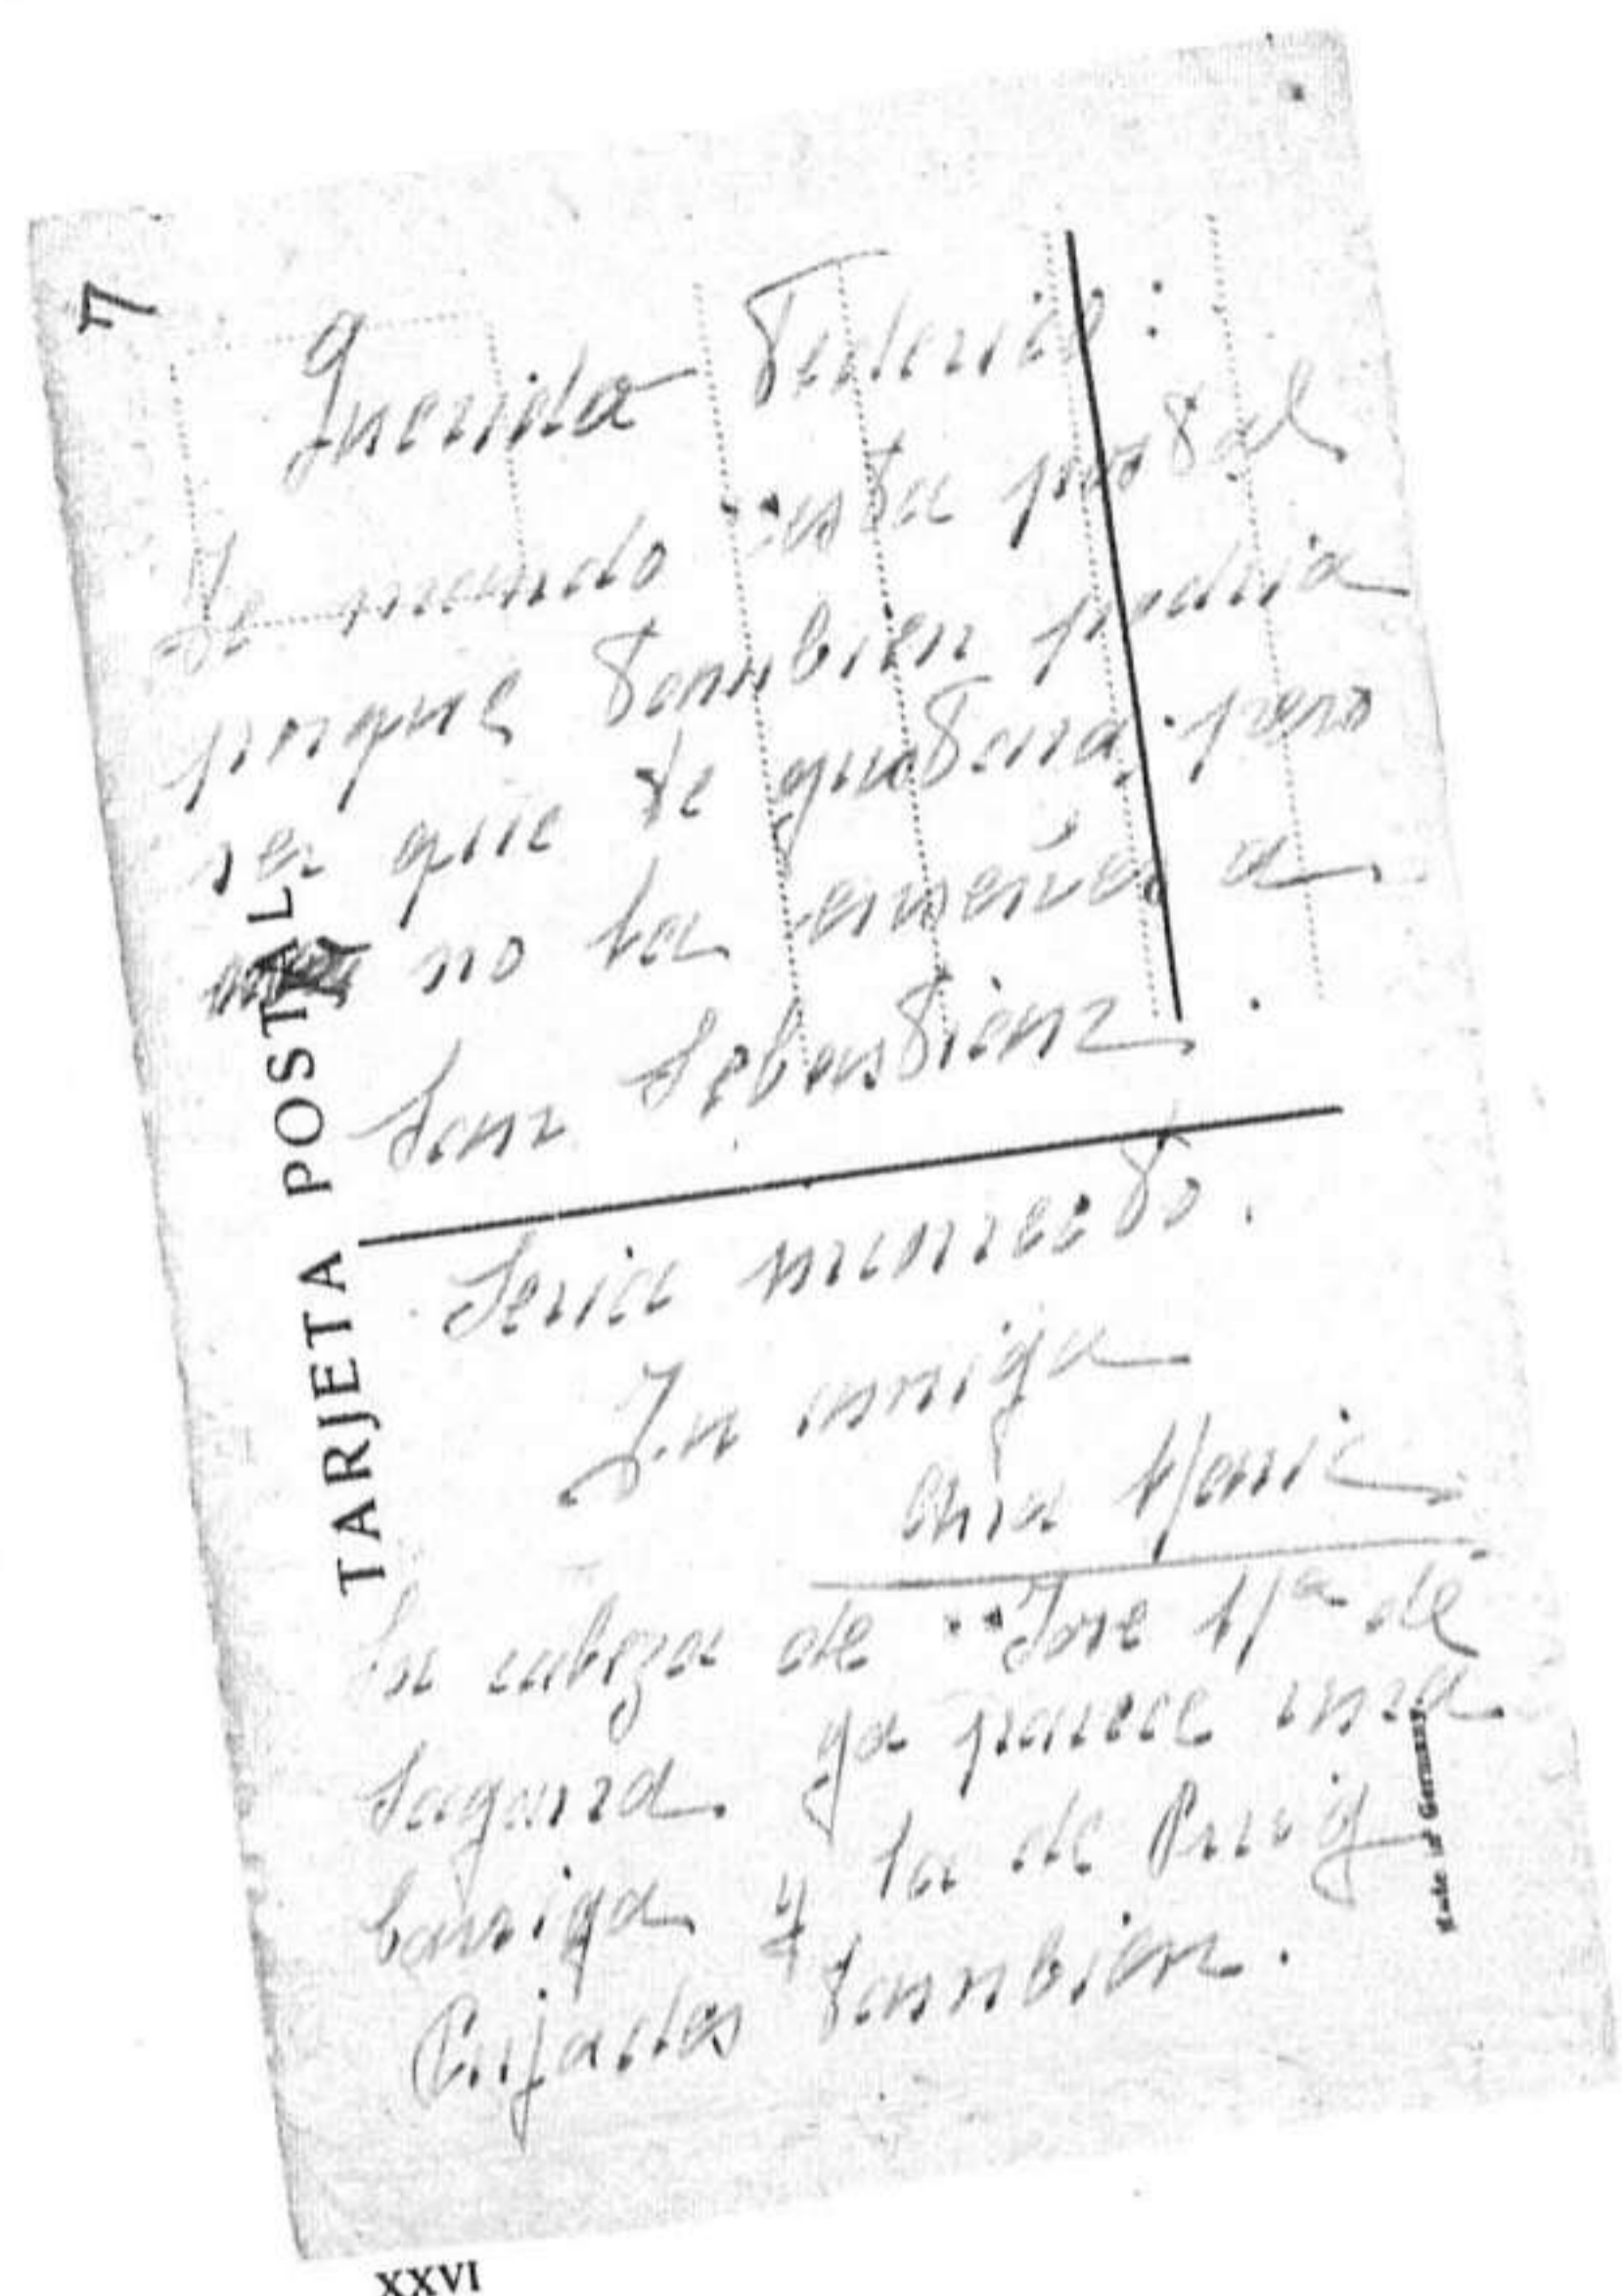 7
Querido Federico:
Te mando esta postal
porque tambien podria
ser que te gustara, pero
no la enseñes a
San Sebastian.
Seria incorrecto.
Tu amiga
Ana Maria
La cabeza de "Jose Mª de
Sagarra ya parece una
barriga y la de Puig
Pujades tambien.
TARJETA POSTAL
Made in Germany.
XXVI